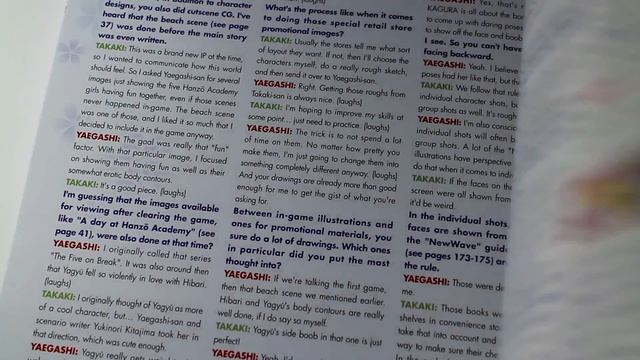 designs, you also did cutscene CG. I've
heard that the beach scene (see page
37) was done before the main story
was even written.
TAKAKI: This was a brand new IP at the time,
so I wanted to communicate how this world
should feel. So I asked Yaegashi-san for several
images just showing the five Hanzō Academy
girls having fun together, even if those scenes
never happened in-game. The beach scene
was one of those, and I liked it so much that I
decided to include it in the game anyway.
YAEGASHI: The goal was really that "fun"
factor. With that particular image, I focused
on showing them having fun as well as their
somewhat erotic body contours.
TAKAKI: It's a good piece. (laughs)
I'm guessing that the images available
for viewing after clearing the game,
like "A day at Hanzō Academy" (see
page 41), were also done at that time?
YAEGASHI: I originally called that series
"The Five on Break". It was also around then
that Yagyū fell so violently in love with Hibari.
(laughs)
TAKAKI: I originally thought of Yagyū as more
of a cool character, but... Yaegashi-san and
scenario writer Yukinori Kitajima took her in
that direction, which was cute enough.
YAEGASHI: Yagyū really gets
What's the process like when it comes
to doing those special retail store
promotional images?
TAKAKI: Usually the stores tell me what sort
of layout they want. If not, then I'll choose the
characters myself, do a really rough sketch,
and then send it over to Yaegashi-san.
YAEGASHI: Right. Getting those roughs from
Takaki-san is always nice. (laughs)
TAKAKI: I'm hoping to improve my skills at
some point... just need to practice. (laughs)
YAEGASHI: The trick is to not spend a lot
of time on them. No matter how pretty you
make them, I'm just going to change them into
something completely different anyway. (laughs)
And your drawings are already more than good
enough for me to get the gist of what you're
asking for.
Between in-game illustrations and
ones for promotional materials, you
sure do a lot of drawings. Which ones
in particular did you put the most
thought into?
YAEGASHI: If we're talking the first game,
then that beach scene we mentioned earlier.
Hibari and Yagyū's body contours are really
well done, if I do say so myself.
TAKAKI: Yagyū's side boob in that one is just
perfect!
YAEGASHI: Yeah,
KAGURA is all about the
to come up with daring poses
to show off the face and
I see. So you can't have
facing backward.
YAEGASHI: Yeah. I believe
poses had her like that, but
TAKAKI: We follow that rule
individual character shots,
group shots as well. It's rough
YAEGASHI: I'm also conscio
individual shots will often
group shots. A lot of the
illustrations have perspective
do that when it comes to
TAKAKI: If the faces on the
screen were all shown from
it'd be weird.
In the individual shots
faces are shown from
the "NewWave" guid
(see pages 173-175) ar
the rule.
YAEGASHI: Those were
me.
TAKAKI: Those books
shelves in convenience sto
take that into account and
way to make sure their che